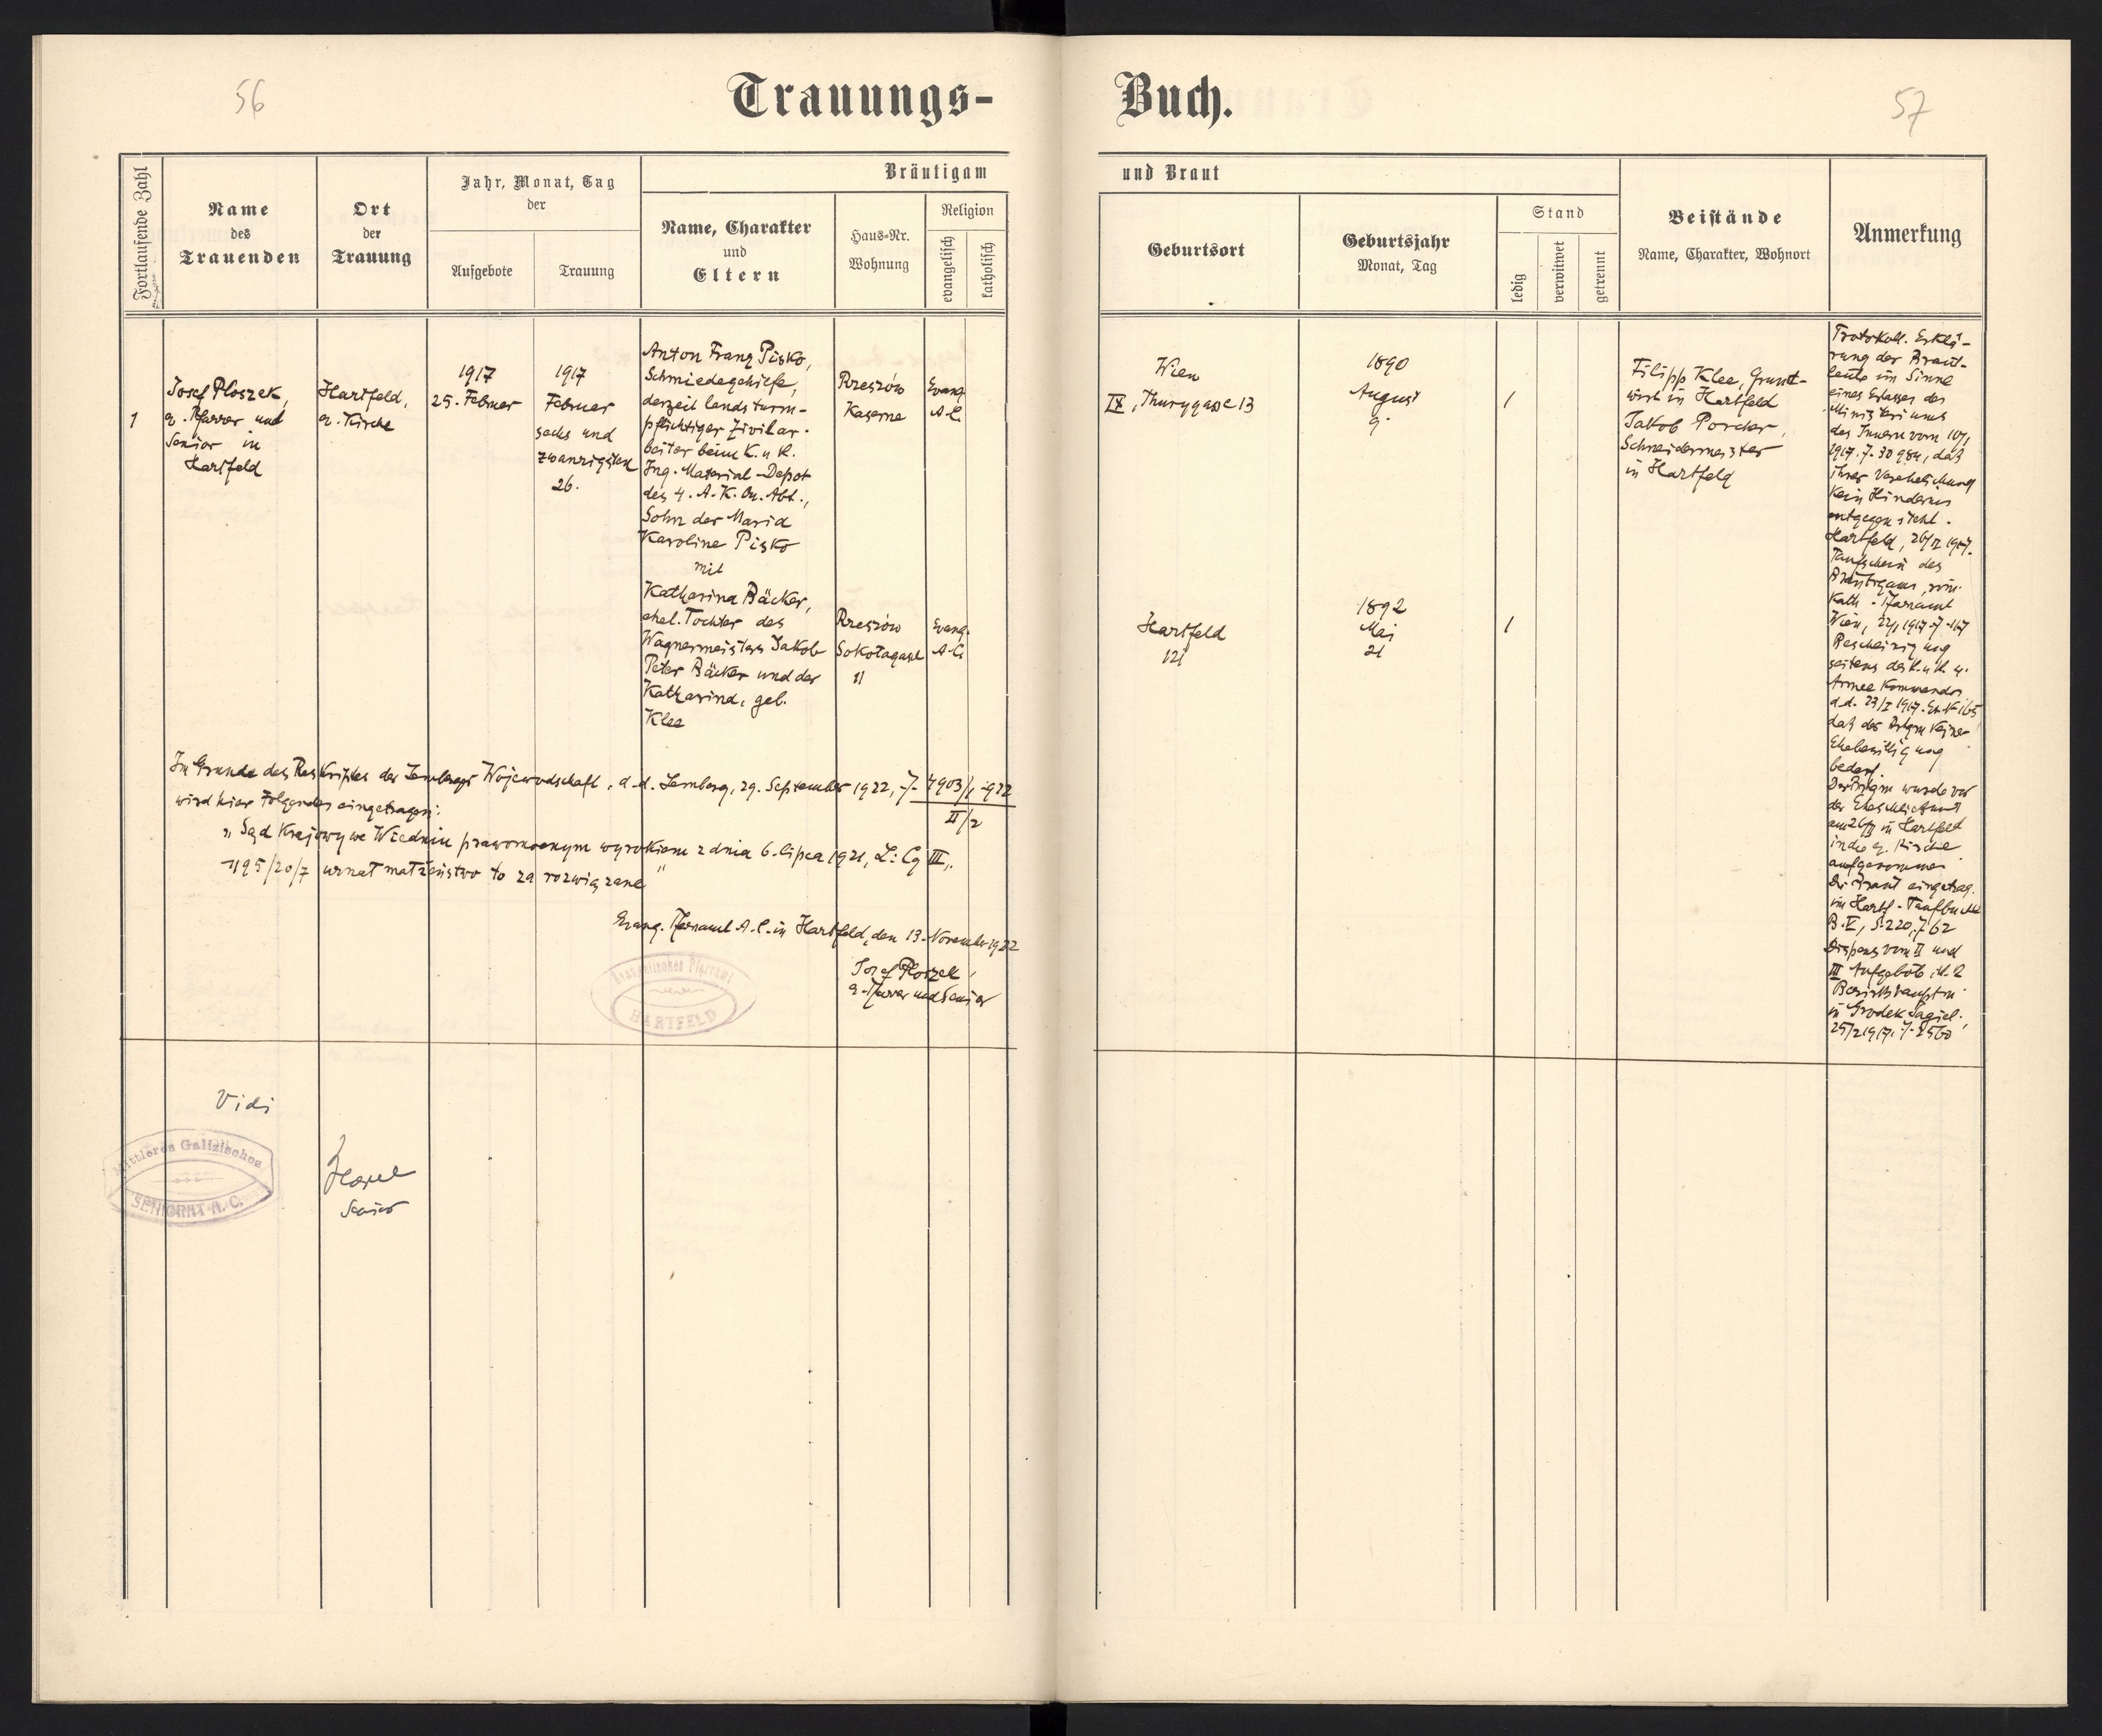 56
Trauungs-
Fortlaufende Zahl
Name
des
Trauenden
Ort
der
Trauung
Jahr, Monat, Tag
der
Aufgebote
Trauung
Bräutigam
Name, Charakter
und
Eltern
Haus-Nr.
Wohnung
Religion
evangelisch
katholisch
1
Josef Ploszek,
e. Pfarrer und
Senior in
Hartfeld
Hartfeld,
e. Kirche
1917
25. Februar
1917
Februar
sechs und
zwanzigsten
26.
Anton Franz Pisko,
Schmiedegehilfe,
derzeit landsturm-
pflichtiger Zivilar-
beiter beim K. u K.
Ing. Material-Depot
des 4. A. K. Qu. Abt.,
Sohn der Maria
Karoline Pisko
mit
Katharina Bäcker,
ehel. Tochter des
Wagnermeisters Jakob
Peter Bäcker und der
Katharina, geb.
Klee
Rzeszów
Kaserne
Evang.
A. C.
Rzeszów
Sokołagasse
11
Evang.
A. C.
Im Grunde des Reskriptes der Lemberger Wojewodschaft, d. d. Lemberg, 29. September 1922, Z. 4903/1 922
II/2
wird hier Folgendes eingetragen:
„Sąd Krajowy we Wiedniu prawomocnym wyrokiem z dnia 6. lipca 1921, L: Cg III,
1195/20/7 uznał małżeństwo to za rozwiązane"
Evang. Pfarramt A. C. in Hartfeld, den 13. November 1922
Josef Ploszek,
e. Pfarrer und Senior
Evangelisches Pfarramt
HARTFELD
Vidi
Mittleres Galizisches
SENIORAT A. C.
Senior
57
Buch.
und Braut
Geburtsort
Geburtsjahr
Monat, Tag
Stand
ledig
verwitwet
getrennt
Beistände
Name, Charakter, Wohnort
Anmerkung
Wien
IX, Thurygasse 13
1890
August
9.
1
Hartfeld
121
1892
Mai
21
1
Filipp Klee, Grund-
wirt in Hartfeld
Jakob Porcher,
Schneidermeister
in Hartfeld
Protokoll. Erklä-
rung der Braut-
leute im Sinne
eines Erlasses des
Ministeriums
des Innern vom
1917. Z. 30 984, daß
ihrer Verehelichung
kein Hindernis
entgegen steht.
Hartfeld, 26/II 1917.
Taufschein des
Bräutigams, röm.
kath. Pfarramt
Wien, 1917 Z. 117
Bescheinigung
seitens des k. u. k. 4.
Armee Kommandos
d. d. 23/I 1917.
daß der Brtgm keiner
Ehebewilligung
bedarf.
Der Brtgm wurde vor
der Eheschließung
am 26/II in Hartfeld
in die e. Kirche
aufgenommen
Die Braut eingetrag.
im Hartf. Taufbuche
B. V, S. 220, Z 62
Dispens vom II und
III Aufgebot
Bezirkshauptm.
in Grodek Jagiel.,
25/2 1917. Z. 2560